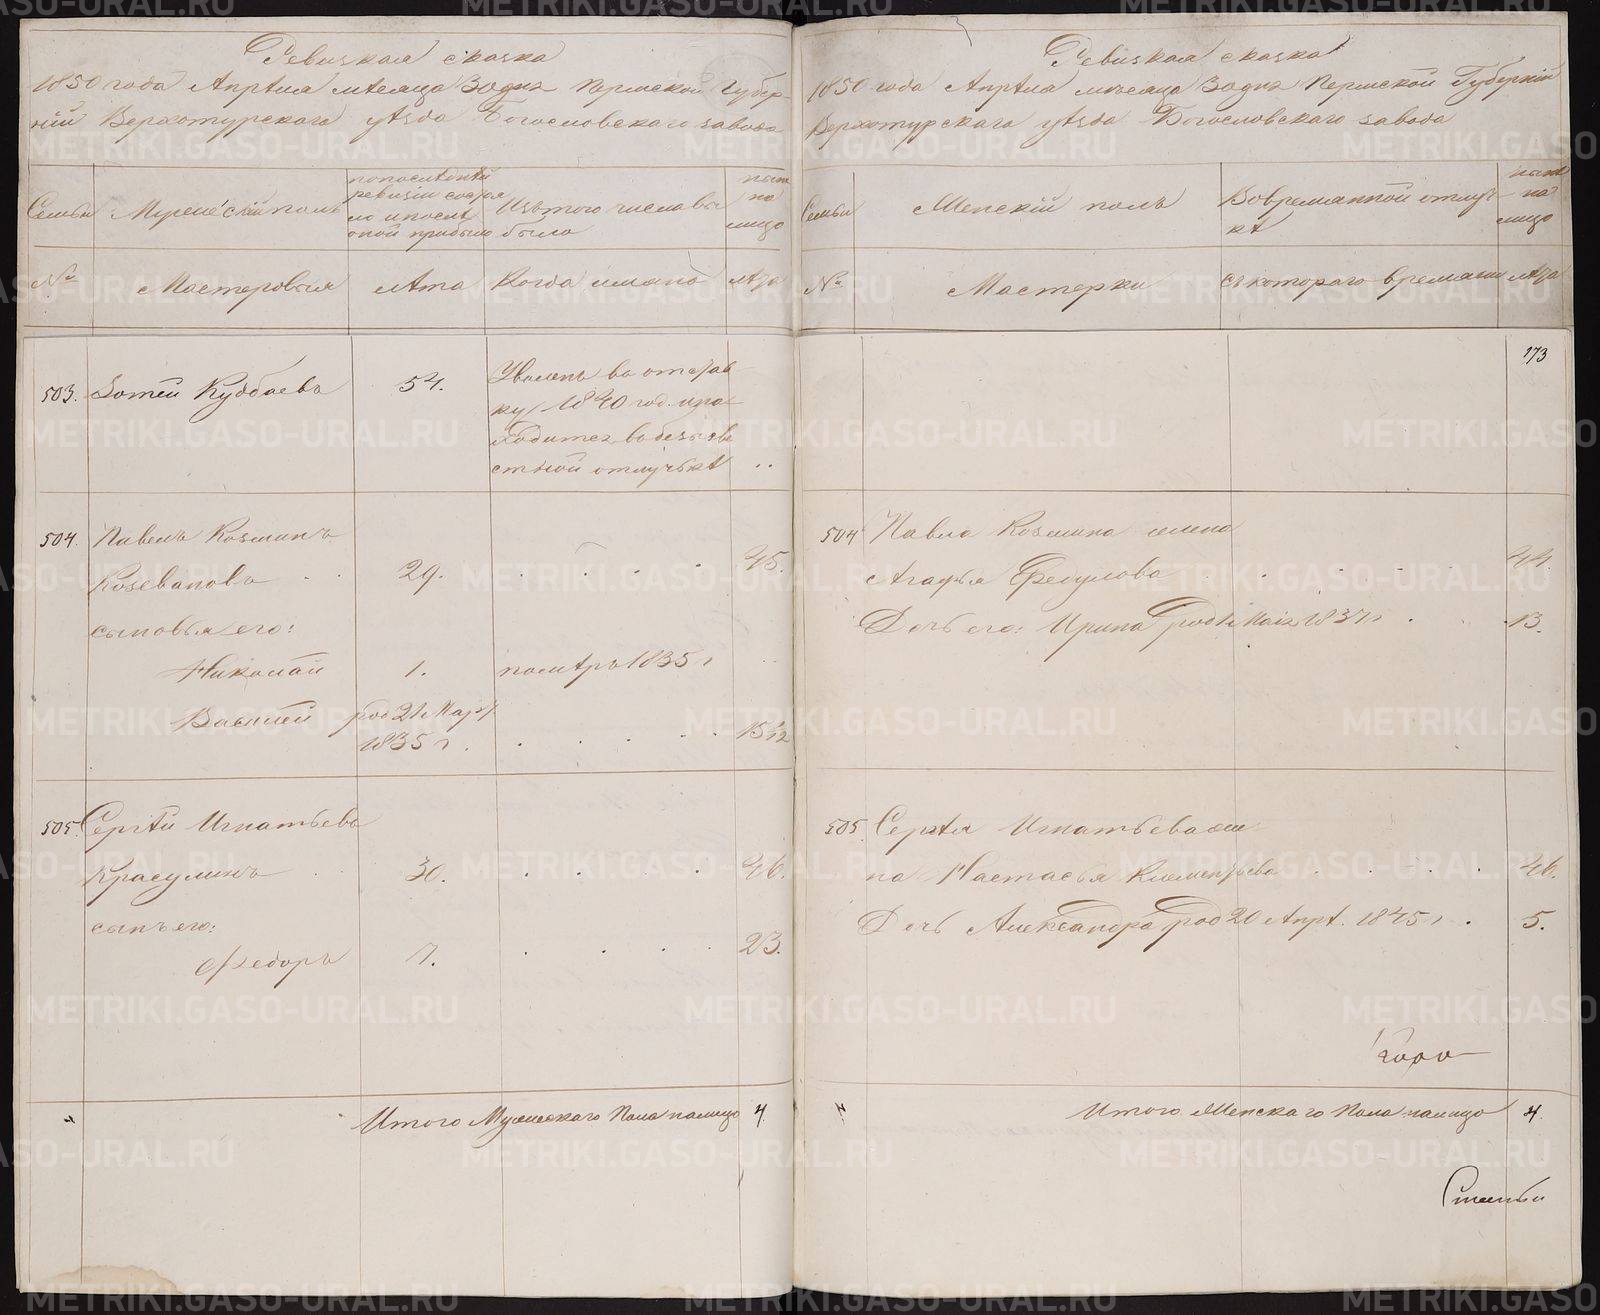 Ревизкая сказка
1850 года Апрѣля мѣсяца 30 дня Пермской Губер-
нiй Верхотурскаго уѣзда Богословскаго завода
Семьи
Мужескiй полъ
по последней
ревизiи состоя
ло и посли
оной прибыло
Изъ того числа вы
было
ныне
на
лицо
№
Мастеровыя
Лѣта
Когда имяно
Лѣта
503.
Зотей Кудбаевъ
54.
Уволенъ во отстав
ку 1840 год. и на
ходится в безызве
стной отлучькѣ
504.
Павелъ Козминъ
Козевановъ
29.
45.
сыновья его:
Николай
1.
помѣръ 1835 г
Василей
род 21 Мар.
1835 г.
15 1/12
505.
Сергѣй Игнатьевъ
Красулинъ
30.
46.
сынъ его:
Федоръ
7.
23.
Итого Мужескаго Пола налицо
4.
Ревизкая сказка
1850 года Апрѣля мѣсяца 30 дня Пермской Губернiи
Верхотурскаго уѣзда Богословскаго завода
Семьи
Женскiй полъ
Во времянной отлуч
кѣ
ныне
на
лицо
№
Мастерки
съ котораго времяни
Лѣта
173
504
Павла Козмина жена
Агафья Федулова
44.
Дочь его: Ирина род 1 Маiя 1837 г
13.
505
Сергѣя Игнатьева же
на Настасья Клементьева
46.
Дочь Александра род 20 Апрѣ. 1845 г.
5.
Итого Женскаго Пола налицо
4.
METRIKI.GASO-URAL.RU